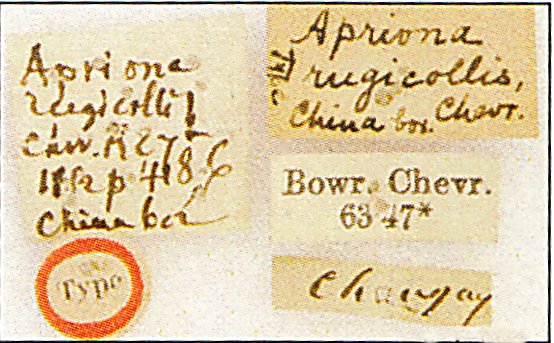 Apriona
rugicollis
Chev. R Z 
1852 p 418
China bor
Type
Apriona
rugicollis,
China bor. Chevr.
Bowr. Chevr.
63 47*